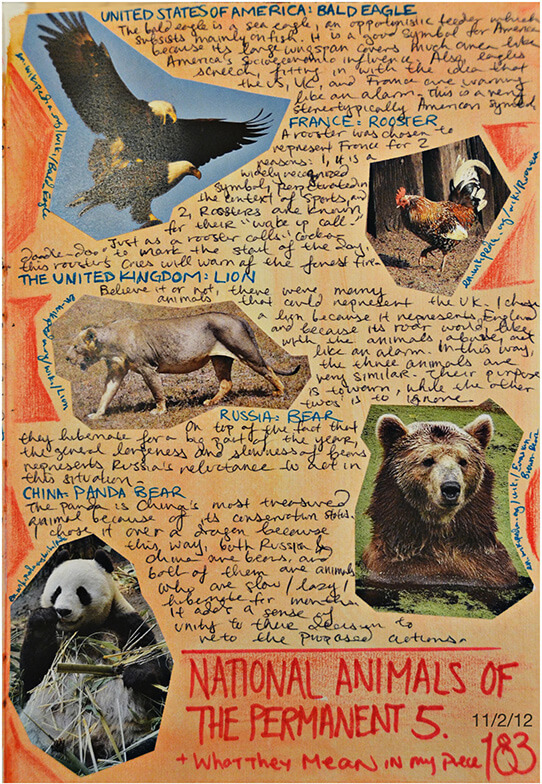 UNITED STATES OF AMERICA: BALD EAGLE
The bald eagle is a sea eagle, an opportunistic feeder which
subsists mainly on fish. It is a good symbol for America
because its large wingspan covers much area like
America's socioeconomic influence. Also, eagles
screech, fitting in with the idea that
the US, UK, and France are warning
like an alarm. This is a very
stereotypically American symbol
en.wikipedia.org/wiki/Bald_Eagle
FRANCE: ROOSTER
A rooster was chosen to
represent France for 2
reasons: 1, it is a
widely recognized
symbol, perpetuated in
the context of sports, and
2, Roosters are known
for their "wake up call".
Just as a rooster calls "cocka-
doodle-doo" to mark the start of the day,
this rooster's cries will warn of the forest fire.
en.wikipedia.org/wiki/Rooster
THE UNITED KINGDOM: LION
Believe it or not, there were many
animals that could represent the UK. I chose
a lion because it represents England
and because its roar would, like
with the animals above, act
like an alarm. In this way,
the three animals are
very similar. Their purpose
is to warn, while the other
two's is to ignore.
en.wikipedia.org/wiki/Lion
RUSSIA: BEAR
On top of the fact that
they hibernate for a big part of the year,
the general largeness and slowness of bears
represents Russia's reluctance to act in
this situation.
CHINA: PANDA BEAR
The panda is China's most treasured
animal because of its conservation status.
I chose it over a dragon because
this way, both Russia &
China are bears, and
both of them are animals
who are slow / lazy /
hibernate for months.
It adds a sense of
unity to their decision to
veto the proposed actions.
NATIONAL ANIMALS OF
THE PERMANENT 5.
11/2/12
+ WHAT THEY MEAN IN MY PIECE
183